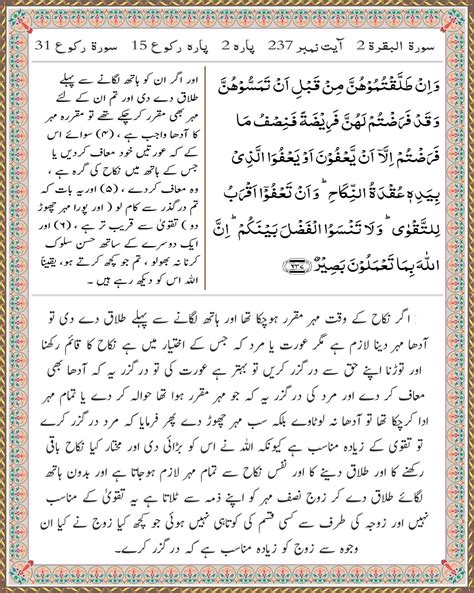 سورۃ البقرۃ 2 آیت نمبر 237 پارہ 2 پارہ رکوع 15 سورۃ رکوع 31
وَاِنْ طَلَّقْتُمُوْهُنَّ مِنْ قَبْلِ اَنْ تَمَسُّوْهُنَّ
وَقَدْ فَرَضْتُمْ لَهُنَّ فَرِيْضَةً فَنِصْفُ مَا
فَرَضْتُمْ اِلَّاۤ اَنْ يَّعْفُوْنَ اَوْ يَعْفُوَا الَّذِىْ
بِيَدِهٖ عُقْدَةُ النِّكَاحِ ؕ وَاَنْ تَعْفُوْۤا اَقْرَبُ
لِلتَّقْوٰى ؕ وَلَا تَنْسَوُا الْفَضْلَ بَيْنَكُمْ ؕ اِنَّ
اللّٰهَ بِمَا تَعْمَلُوْنَ بَصِيْرٌ ﴿۲۳۷﴾
اور اگر ان کو ہاتھ لگانے سے پہلے
طلاق دے دی اور تم ان کے لئے
مہر بھی مقرر کرچکے تھے تو مقررہ مہر
کا آدھا واجب ہے ، (۴) سوائے اس
کے کہ عورتیں خود معاف کردیں یا
جس کے ہاتھ میں نکاح کی گرہ ہے
وہ معاف کردے ، (۵) اور یہ بات کہ
تم درگزر سے کام لو ( اور پورا مہر چھوڑ
دو ) تقویٰ سے قریب تر ہے ، (۶) اور
ایک دوسرے کے ساتھ حسن سلوک
کرنا نہ بھولو ، تم جو کچھ کرتے ہو، یقیناً
اللہ اس کو دیکھ رہے ہیں ۔
اگر نکاح کے وقت مہر مقرر ہوچکا تھا اور ہاتھ لگانے سے پہلے طلاق دے دی تو
آدھا مہر دینا لازم ہے مگر عورت یا مرد کہ جس کے اختیار میں ہے نکاح کا قائم رکھنا
اور توڑنا اپنے حق سے درگزر کریں تو بہتر ہے عورت کی تو درگزر یہ کہ آدھا بھی
معاف کر دے اور مرد کی درگزر یہ کہ جو مہر مقرر ہوا تھا حوالہ کر دے یا تمام مہر
ادا کرچکا تھا تو آدھا نہ لوٹاوے بلکہ سب مہر چھوڑ دے پھر فرمایا کہ مرد درگزر کرے
تو تقویٰ کے زیادہ مناسب ہے کیونکہ اللہ نے اس کو بڑائی دی اور مختار کیا نکاح باقی
رکھنے کا اور طلاق دینے کا اور نفس نکاح سے تمام مہر لازم ہوجاتا ہے اور بدون ہاتھ
لگائے طلاق دے کر زوج نصف مہر کو اپنے ذمہ سے ٹلاتا ہے یہ تقویٰ کے مناسب
نہیں اور زوجہ کی طرف سے کسی قسم کی کوتاہی نہیں ہوئی جو کچھ کیا زوج نے کیا ان
وجوہ سے زوج کو زیادہ مناسب ہے کہ درگزر کرے۔